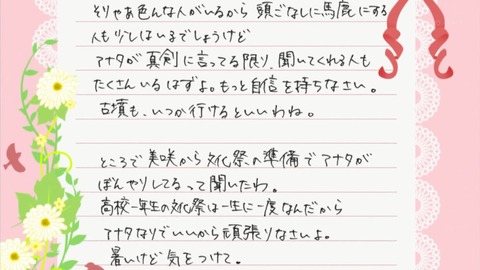 そりゃあ色んな人がいるから 頭ごなしに馬鹿にする
人も少しはいるでしょうけど
アナタが真剣に言ってる限り、聞いてくれる人も
たくさんいるはずよ。もっと自信を持ちなさい。
古墳も、いつか行けるといいわね。
ところで美咲から文化祭の準備でアナタが
ぼんやりしてるって聞いたわ。
高校一年生の文化祭は一生に一度なんだから
アナタなりでいいから頑張りなさいよ。
暑いけど気をつけて。